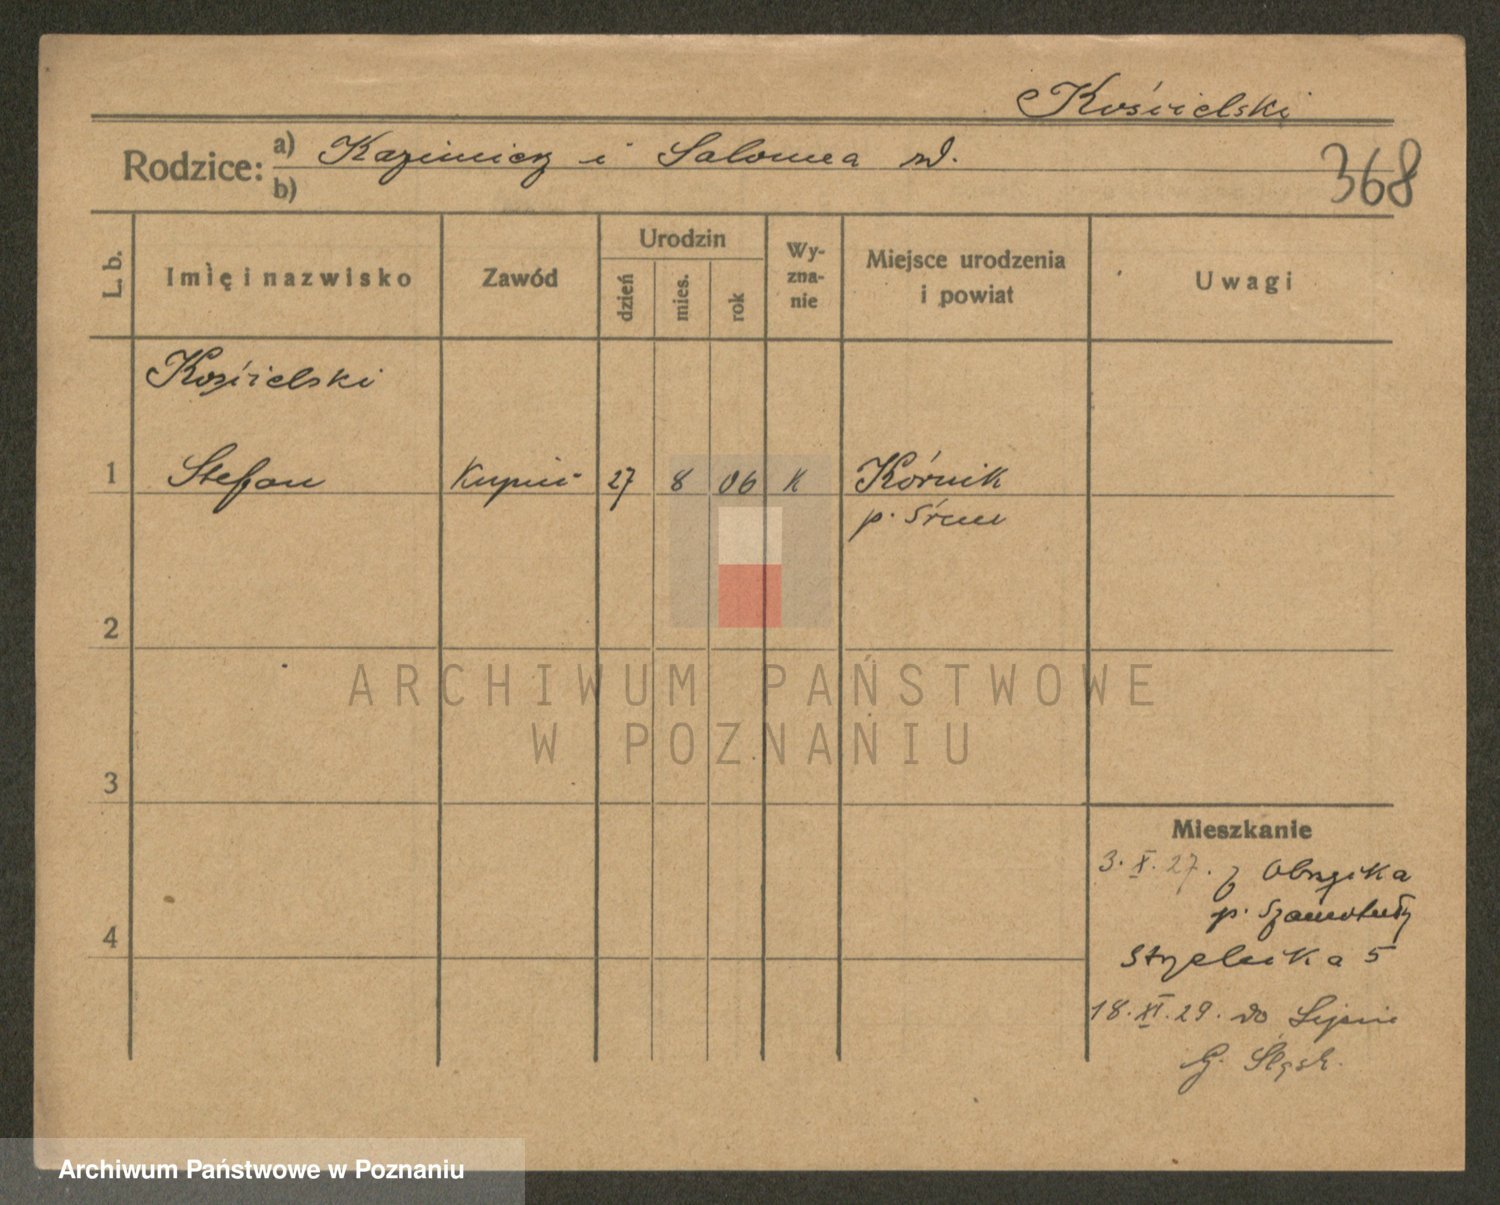 Kościelski
368
Rodzice: a) Kazimierz i Salomea zd.
b)
L. b.
Imię i nazwisko
Zawód
Urodzin
dzień
mies.
rok
Wy-
zna-
nie
Miejsce urodzenia
i powiat
Uwagi
Kościelski
1 Stefan Kupiec 27 8 06 K Kórnik
p. Śrem
2
ARCHIWUM PAŃSTWOWE
W POZNANIU
3
4
Mieszkanie
3. X. 27. z Obrzycka
p. Szamotuły
Strzelecka 5
18. XI. 29. do
G. Śląsk.
Archiwum Państwowe w Poznaniu